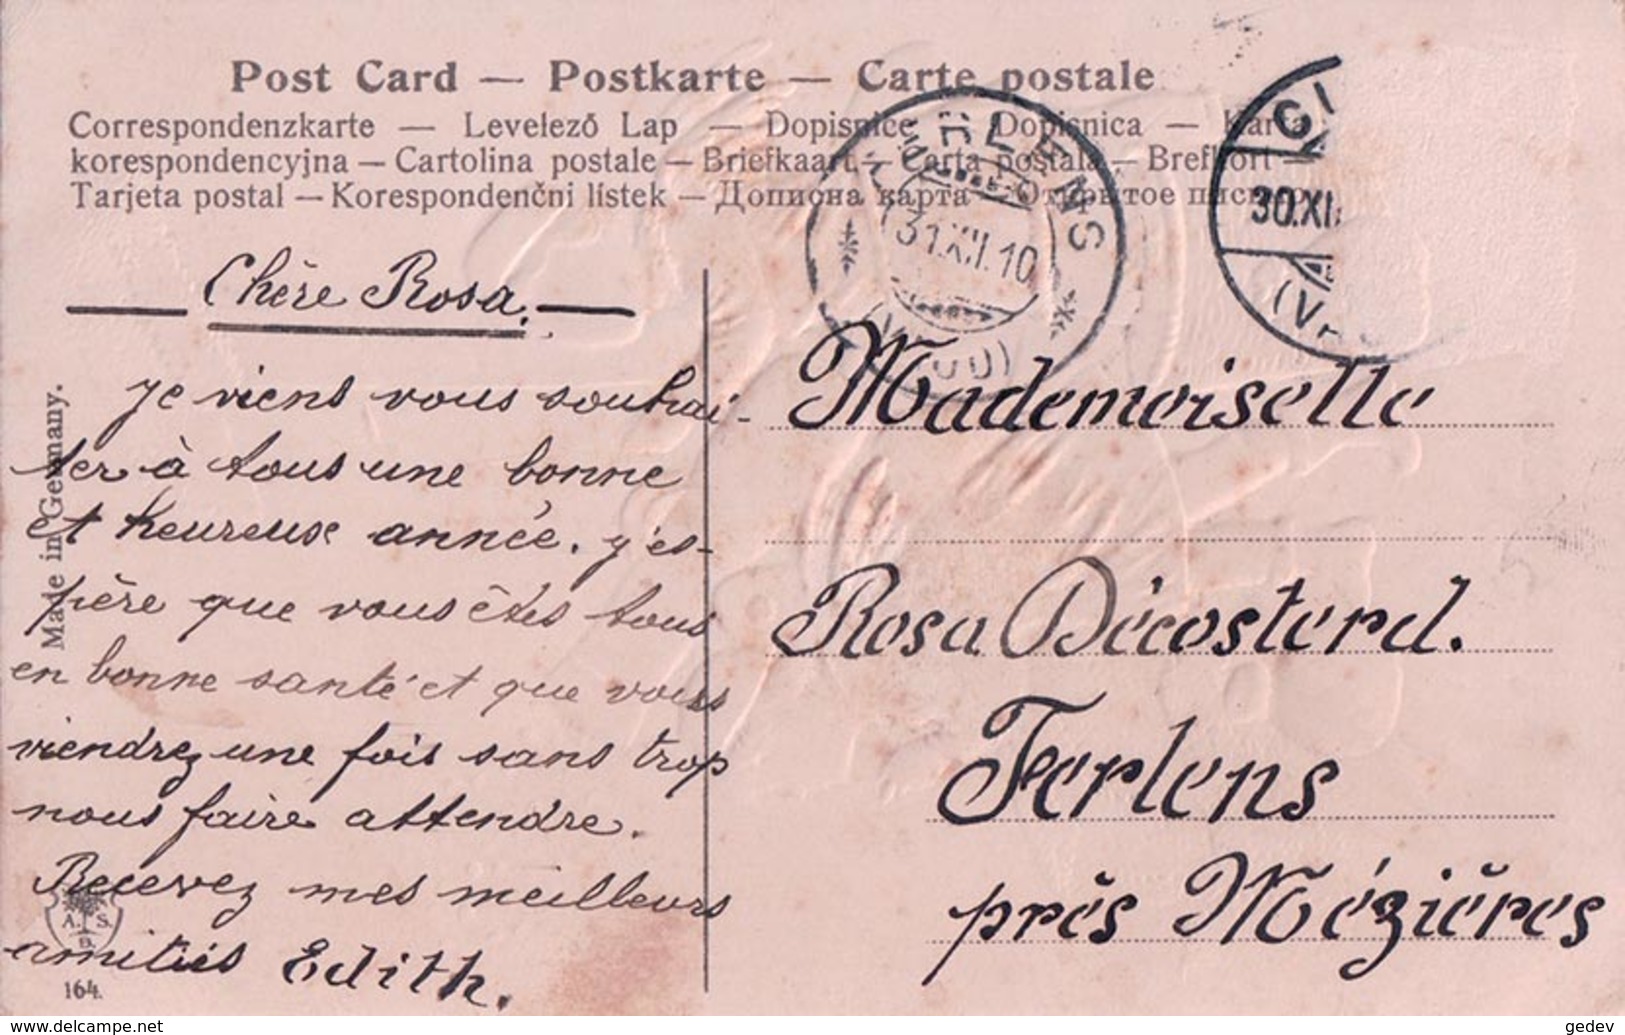 Post Card — Postkarte — Carte postale
Correspondenzkarte — Levelező Lap — Dopisnice — Dopisnica — Karta
korespondencyjna — Cartolina postale — Briefkaart — Carta postala — Brefkort —
Tarjeta postal — Korespondenční lístek — Дописна карта — Открытое письмо
31.XII.10
30.XI
Chère Rosa.
Je viens vous souhai-
ter à tous une bonne
et heureuse année. j'es-
père que vous êtes tous
en bonne santé et que vous
viendrez une fois sans trop
nous faire attendre.
Recevez mes meilleurs
amitiés Edith.
Mademoiselle
Rosa Décosterd.
Ferlens
près Mézières
Made in Germany.
A. S.
B.
164.
www.delcampe.net
gedev